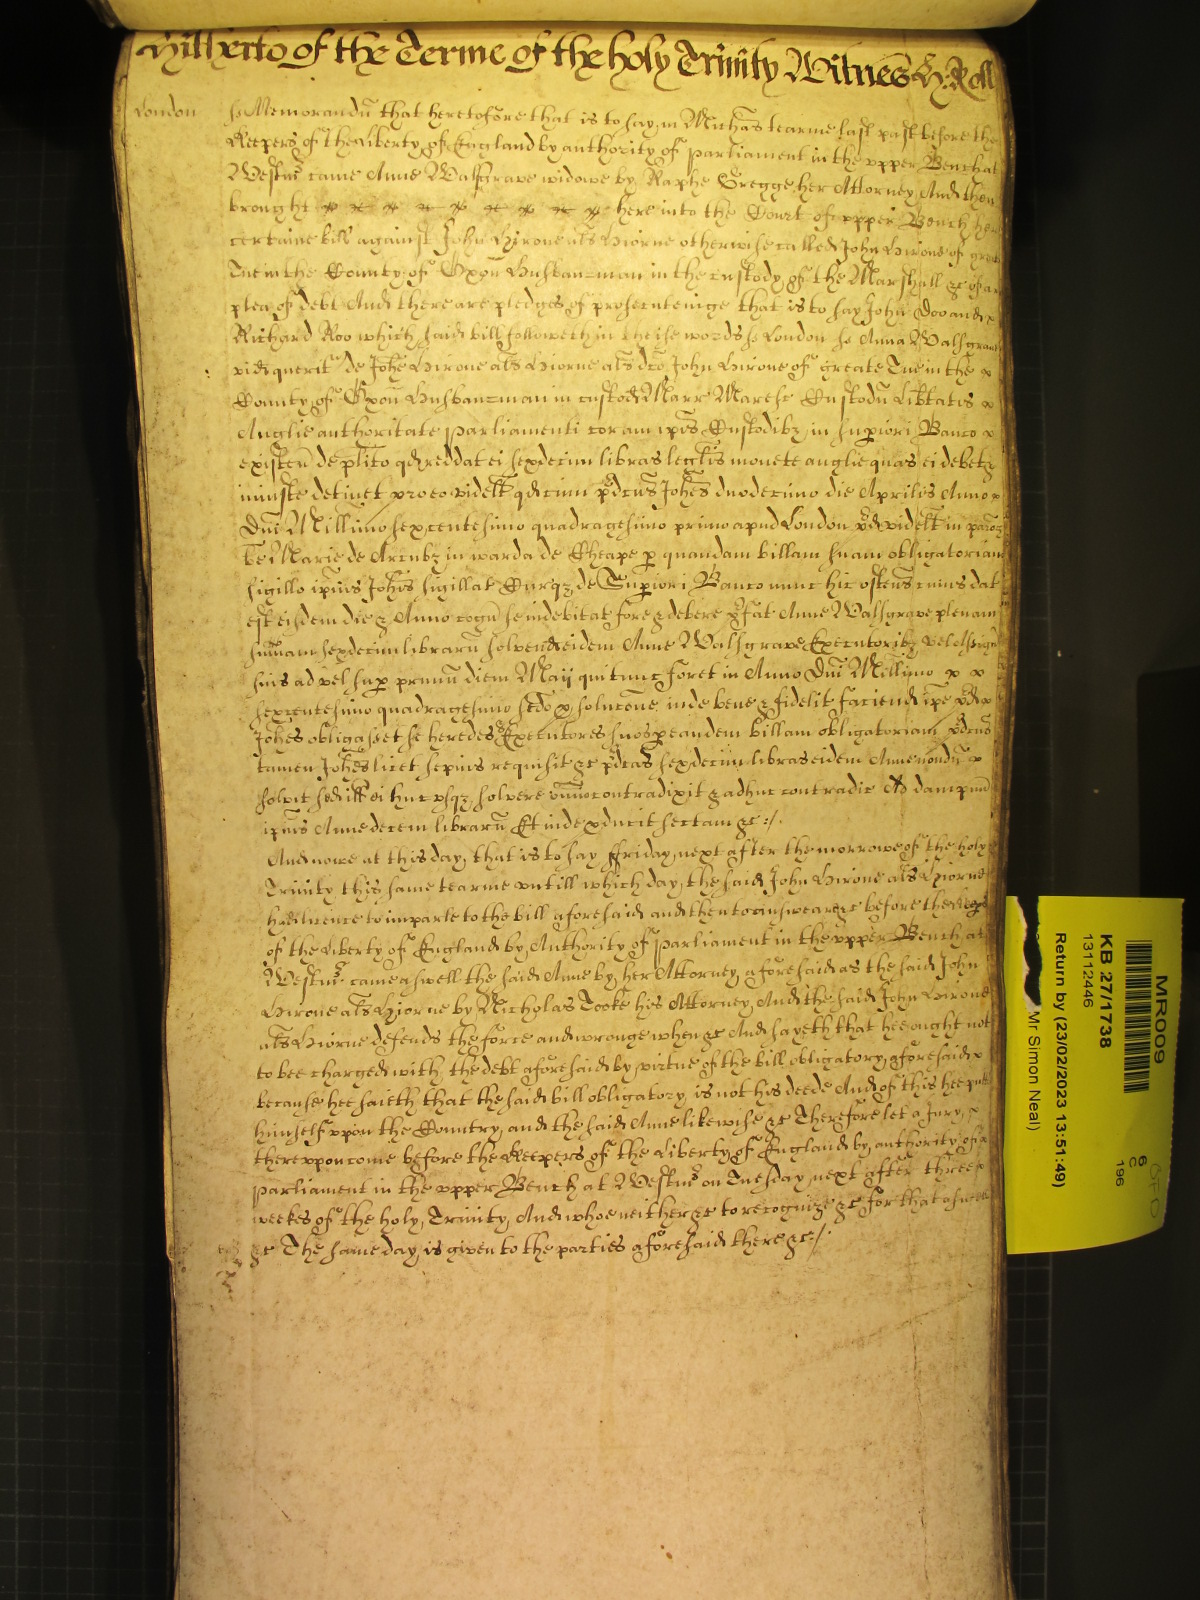 Hitherto of the Terme of the holy Trinity Witnes H: Roll
London
ss Memorandū that heretofore that is to say in Michās tearme last past before the
Keepers of the Liberty of England by authority of parliament in the vpper Bench at
Westmr came Anne Walsgrave widowe by Raphe Gregge her Attorney And then
brought here into the Court of vpper Bench her
certaine bill against John Hirone als Hiorne otherwise called John Hirone of great
Tue in the County of Oxoñ Husbandman in the custody of the Marshall &c of a
plea of debt And there are pledges of prosecuteinge that is to say John Doo and
Richard Roo which said bill followeth in theise words ss London ss Anna Walsgrave
vid querit de Johe Hirone als Hiorne als dco John Hirone of greate Tue in the
County of Oxoñ Husbandman in custod Marr Maresc Custodū Libtatis
Anglie authoritate Parliamenti coram ipis Custodibz in supiori Banco
existeñ de plito qd reddat ei sexdecim libras legalis monete anglie quas ei debet &
iniuste detinet p eo videlt qd cum pdcus Johes duodecimo die Aprilis Anno
Dni Millimo sexcentesimo quadragesimo primo apud London pd videlt in paroch
be Marie de Arcubz in warda de Cheape p quandam billam suam obligatoriam
sigillo ipius Johis sigillat Curqz de Supiori Banco nunc hic ostens cuius dat
est eisdem die & Anno cogñ se indebitat fore & debere pfat Anne Walsgrave plenam
summam sexdecim librarū solvend eidem Anne Walsgrave Executoribz vel Assign
suis ad vel sup primū diem Maij qui tunc foret in Anno Dni Millimo
sexcentesimo quadragesimo scdo p solucone inde bene & fidelit faciend ipe pd
Johes obligasset se heredes & Executores suos p eandem billam obligatoriam pdcus
tamen Johes licet sepius requisit &c pdcas sexdecim libras eidem Anne nondū
solvit sed ill ei huc vsqz solvere omino contradixit & adhuc contradic Ad dampnū
ipius Anne decem librarū Et inde pducit sectam &c :/.
And nowe at this day that is to say ffriday next after the morrowe of the holy
Trinity this same tearme vntill which day the said John Hirone als Hiorne
had licence to imparle to the bill aforesaid and then to answeare &c before the Keeps
of the Liberty of England by Authority of parliament in the vpper Bench at
Westmr came aswell the said Anne by her Attorney aforesaid as the said John
Hirone als Hiorne by Nicholas Tooke his Attorney And the said John Hirone
als Hiorne defends the force and wronge when &c And sayeth that hee ought not
to bee charged with the debt aforesaid by virtue of the bill obligatory aforesaid
because hee saieth that the said bill obligatory is not his deede And of this hee putts
himself vpon the Country and the said Anne likewise &c Therefore let a Jury
therevpon come before the Keepers of the Liberty of England by authority of
parliament in the vpper Bench at Westmr on Tuesday next after three
weekes of the holy Trinity And whoe neither &c to recognize &c for that aswell
&c The same day is given to the parties aforesaid there &c/.
MR009
6
C
196
KB 27/1738
13112446
Return by (23/02/2023 13:51:49)
Mr Simon Neal)